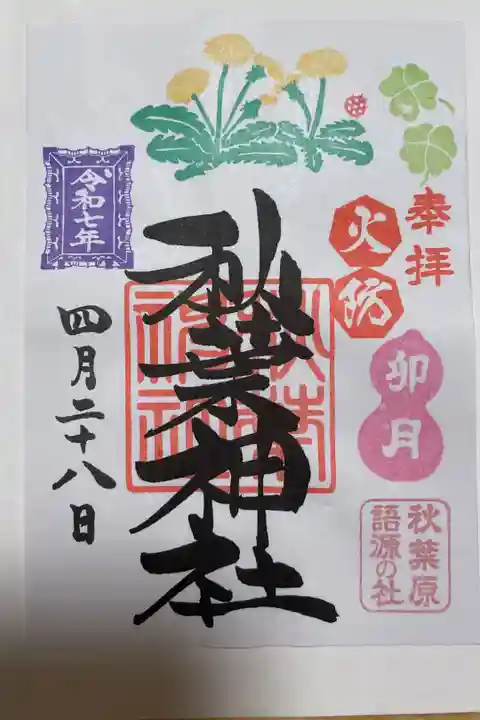 奉拝
火防
卯月
秋葉原
語源の社
秋葉神社
秋葉
神社
令和七年
四月二十八日